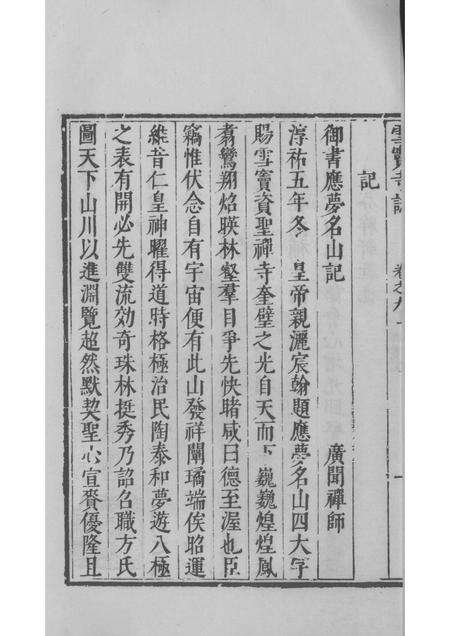 雪竇寺誌 卷之九 一
記
御書應夢名山記 廣聞禪師
淳祐五年冬 皇帝親灑宸翰題應夢名山四大字
賜雪竇資聖禪寺奎璧之光自天而下巍巍煌煌鳳
翥鸞翔焰暎林壑羣目爭先快睹咸曰德至渥也臣
竊惟伏念自有宇宙便有此山發祥闡璚端俟昭運
維昔仁皇神曜得道時格極治民陶泰和夢遊八極
之表有開必先雙流効奇珠林挺秀乃詔名職方氏
圖天下山川以進淵覽超然默契聖心宣賚優隆且